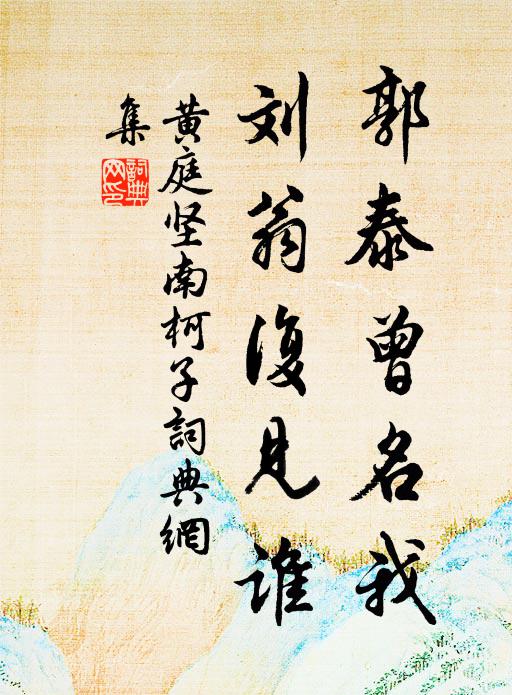 郭泰曾名我
刘翁復見谁
黄庭坚南柯子詞典網
集
詞典网印